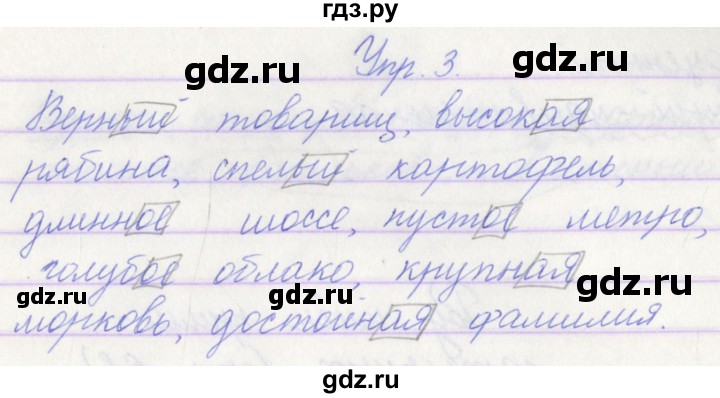 гдз.ру
gdz.ru
gdz.ru
Упр. 3.
Верный товарищ, высокая
gdz.ru
gdz.ru
рябина, спелый картофель,
длинное шоссе, пустое метро,
голубое облако, крупная
gdz.ru
gdz.ru
gdz.ru
морковь, достойная фамилия.
gdz.ru